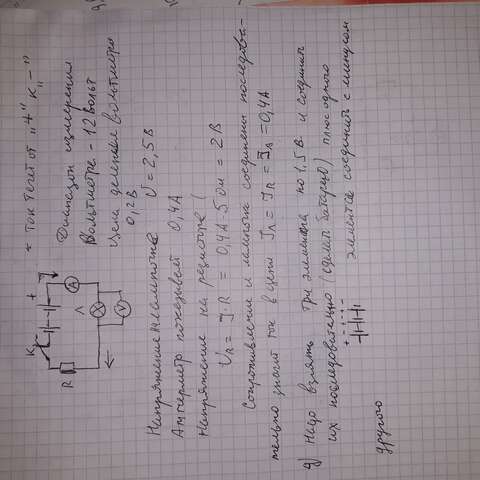 ~ ток течет от „+" к „-"
Диапазон измерения
Вольтметра - 12 вольт
Цена деления вольтметра
0,2 В
K
+
A
Л
X
V
R
Напряжение на лампочке U = 2,5 В
Амперметр показывает 0,4 А
Напряжение на резисторе (
U_R = I · R = 0,4 А · 5 Ом = 2 В
Сопротивление и лампочка соединены последова-
тельно значит ток в цепи I_Л = I_R = I_A = 0,4 А
д) Надо взять три элемента по 1,5 В и соединить
их последовательно (сделать батарею) плюс одного
элемента соединить с минусом
+ - + - + -
другого